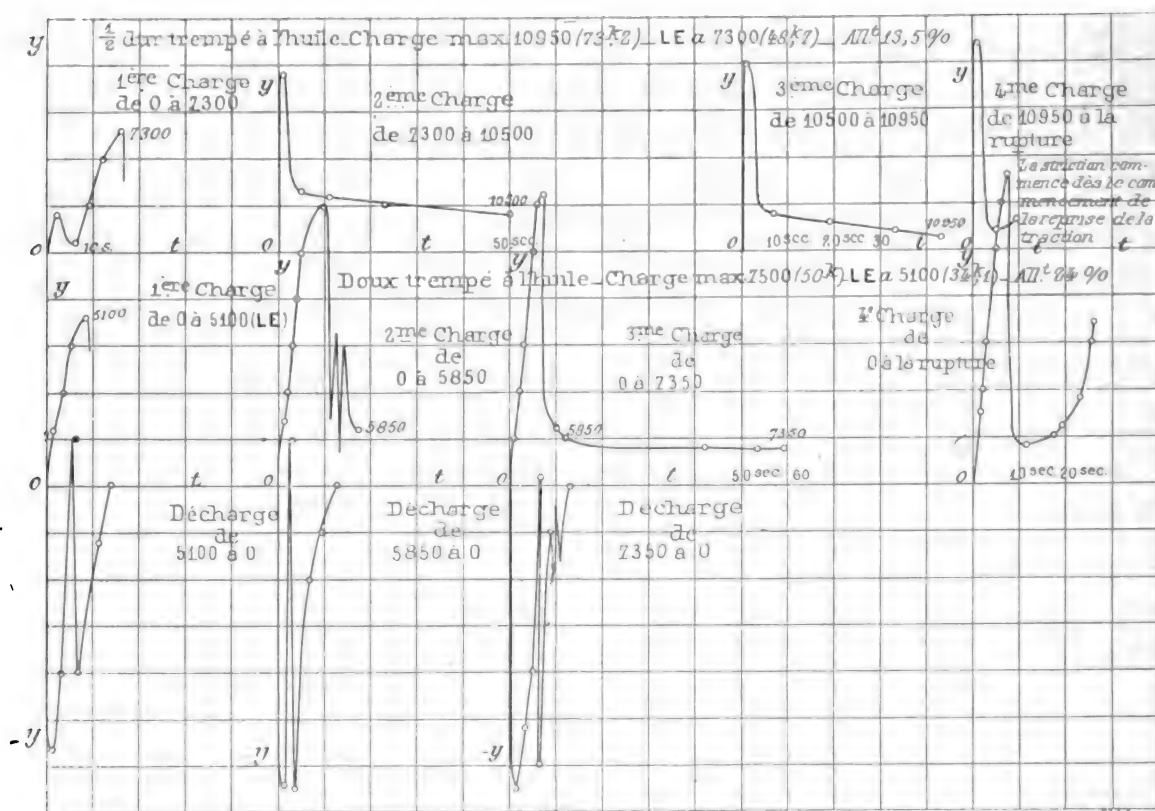 ½ dur trempé à l'huile_Charge max 10950 (73ᵏ,2)_LE à 7300 (48ᵏ,7)_All.ᵗ 13,5 %
y
1ère Charge
de 0 à 7300
7300
0
10 s.
t
y
2ème Charge
de 7300 à 10500
10500
0
t
50 sec
y
3ème Charge
de 10500 à 10950
10950
0
10 sec. 20 sec. 30
t
y
4me Charge
de 10950 à la
rupture
La striction com-
mence dès le com
mencement de
la reprise de la
traction
0
t
t
Doux trempé à l'huile_Charge max 7500 (50ᵏ)_LE à 5100 (34ᵏ,1)_All.ᵗ 24 %
y
1ère Charge
de 0 à 5100 (LE)
5100
0
t
y
2me Charge
de
0 à 5850
5850
0
t
y
3me Charge
de
0 à 7350
5850
7350
0
t
50 sec. 60
y
4e Charge
de
0 à la rupture
0
10 sec. 20 sec.
Décharge
de
5100 à 0
-y
Décharge
de
5850 à 0
-y
Décharge
de
7350 à 0
-y